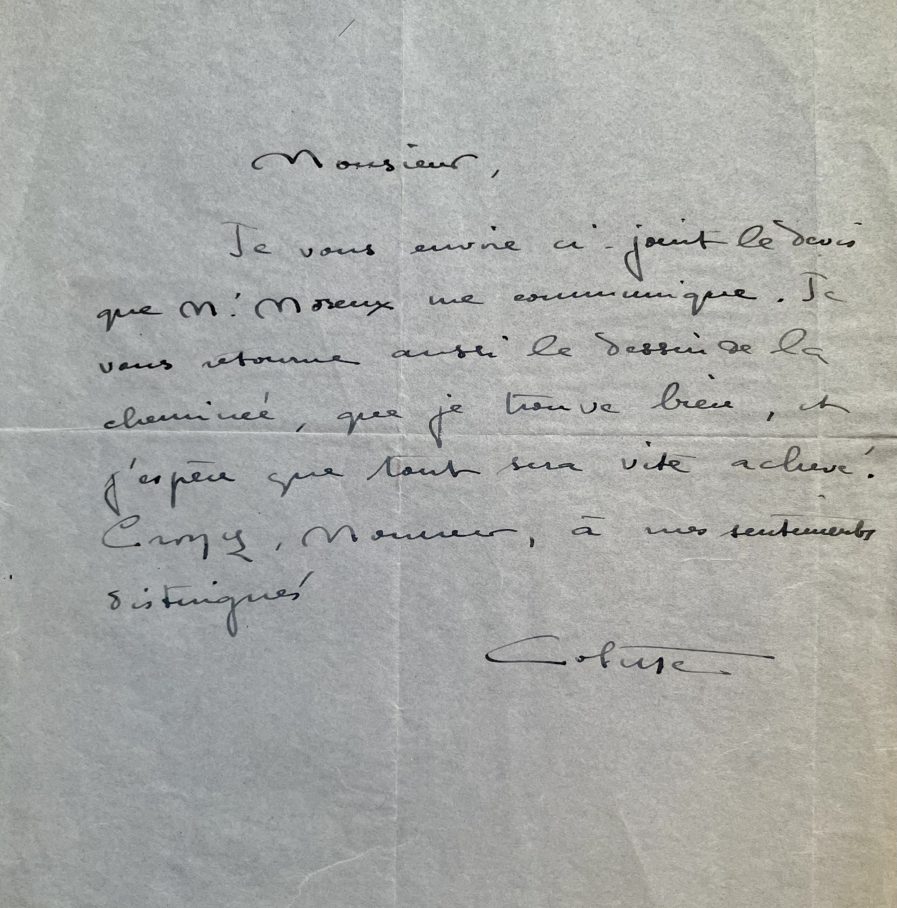 Monsieur,
Je vous envoie ci-joint le devis
que M. Moreux me communique. Je
vous retourne aussi le dessin de la
cheminée, que je trouve bien, et
j'espère que tout sera vite achevé.
Croyez, Monsieur, à mes sentiments
distingués